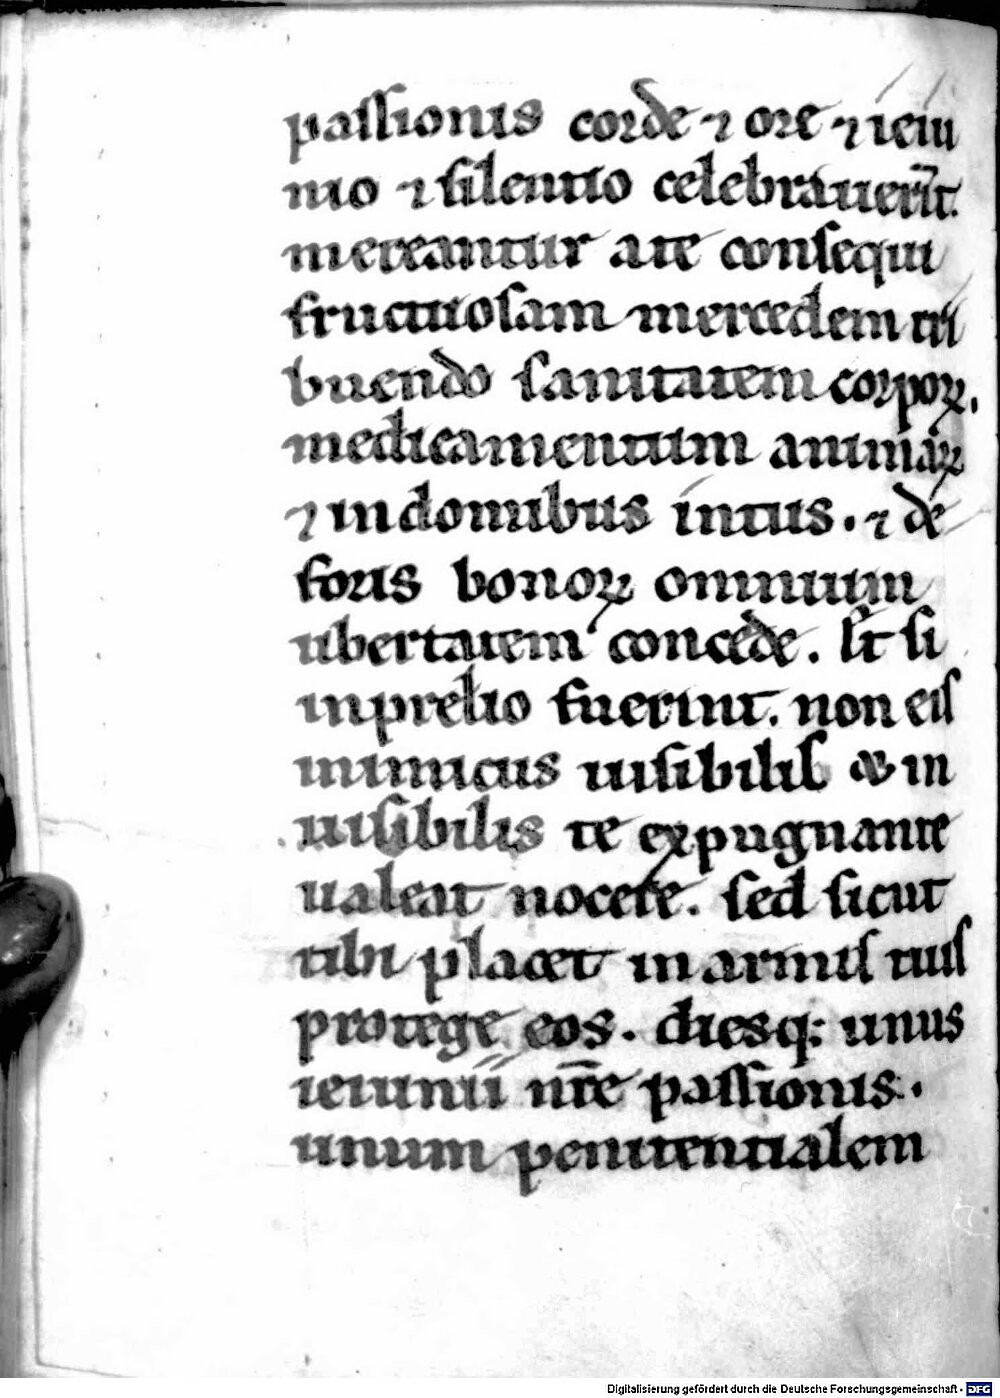 passionis corde ⁊ ore ⁊ ieiu
nio ⁊ silentio celebrauer̄t.
mereantur a te consequi
fructuosam mercedem tri
buendo sanitatem corpoꝝ.
medicamentum animaꝝ
⁊ in domibus intus. ⁊ de
foris bonoꝝ omnium
ubertatem concede. S̄t si
in prelio fuerint. non eis
inimicus uisibilis & in
uisibilis te expugnante
ualeat nocere. sed sicut
tibi placet in armis tuis
protege eos. diesq: unus
ieiunii nr̄e passionis.
unum penitentialem
Digitalisierung gefördert durch die Deutsche Forschungsgemeinschaft - DFG